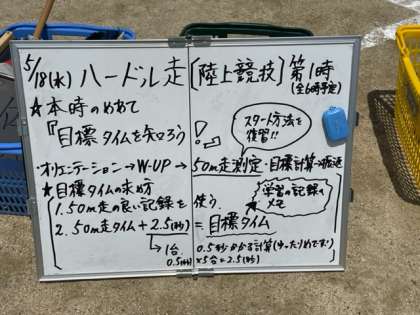 5/18(水) ハードル走〔陸上競技〕第1時
(全6時予定)
★本時のめあて
『目標タイムを知ろう!』
スタート方法を復習!!
・オリエンテーション→W-UP→50m走測定・目標計算→
★目標タイムの求め方
学習の記録へメモ
1.50m走の良い記録を使う。
2.50m走タイム+2.5(秒)=目標タイム
→1台 0.5秒かかる計算(ゆったりめです!)
0.5(秒)×5台=2.5(秒)